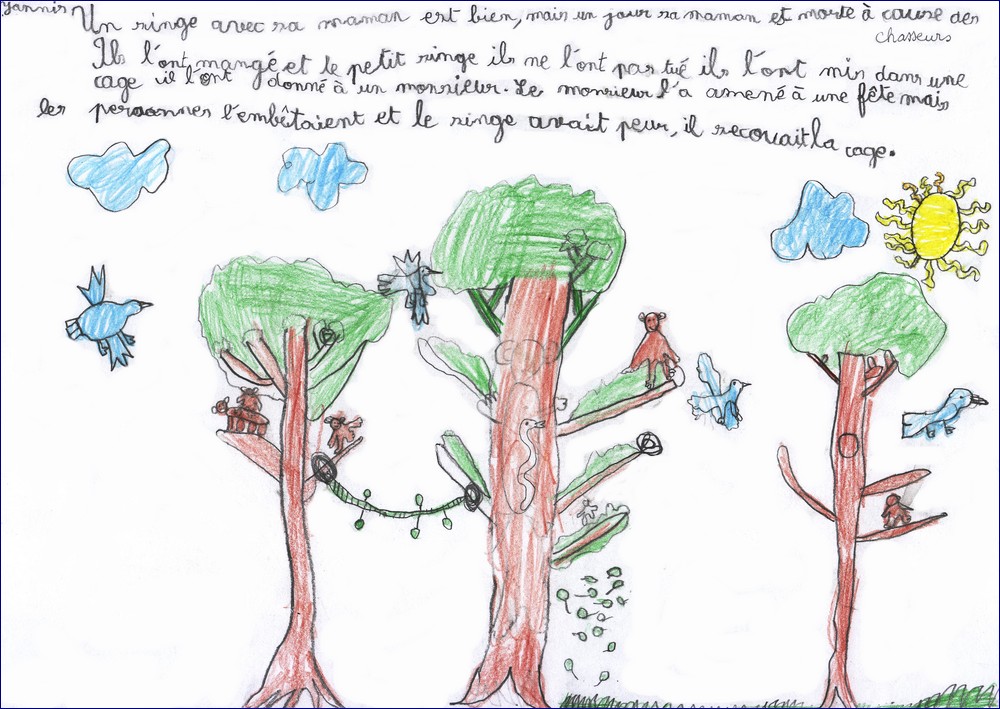 Yannis Un singe avec sa maman est bien, mais un jour sa maman et morte à cause des
chasseurs
Ils l'ont mangé et le petit singe ils ne l'ont pas tué ils l'ont mis dans une
cage il l'ont donné à un monsieur. Le monsieur l'a amené à une fête mais
les personnes l'embêtaient et le singe avait peur, il secouait la cage.